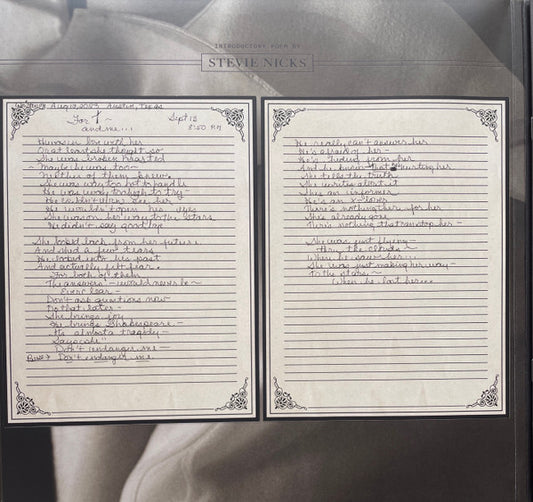 INTRODUCTORY POEM BY
STEVIE NICKS
Written Aug 13, 2023 Austin, Texas
For T ~
and me...!
Sept 13
8:50 PM
He was in love with her
Or at least she thought so
She was broken hearted
~ Maybe he was too ~
Neither of them knew.
She was way too hot to handle
He was way too high to try ~
He couldn't even see her
He wouldn't open his eyes
She was on her way to the stars
He didn't say goodbye
She looked back from her future
And shed a few tears
He looked into his past
And actually felt fear.
For both of them
The answers ~ would never be ~
Ever clear ~
Don't ask questions now
Do that later ~
She brings joy
He brings Shakespeare ~
It's almost a tragedy ~
Says she "
Don't endanger me ~
Don't endanger me
He really can't answer her
He's afraid of her ~
He's hiding from her
And he knows that he's hurting her
She tells the truth
She writes about it
She's an informer
He's an x-lover
There's nothing there for her
She's already gone
There's nothing that can stop her ~
She was just flying ~
thru the clouds ~
When he saw her...
She was just making her way ~
To the stars ~
When he lost her...